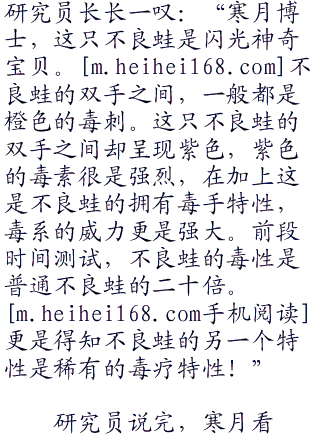 研究员长长一叹：“寒月博
士，这只不良蛙是闪光神奇
宝贝。[m.heihei168.com]不
良蛙的双手之间，一般都是
橙色的毒刺。这只不良蛙的
双手之间却呈现紫色，紫色
的毒素很是强烈，在加上这
是不良蛙的拥有毒手特性，
毒系的威力更是强大。前段
时间测试，不良蛙的毒性是
普通不良蛙的二十倍。
[m.heihei168.com手机阅读]
更是得知不良蛙的另一个特
性是稀有的毒疗特性！”
研究员说完，寒月看